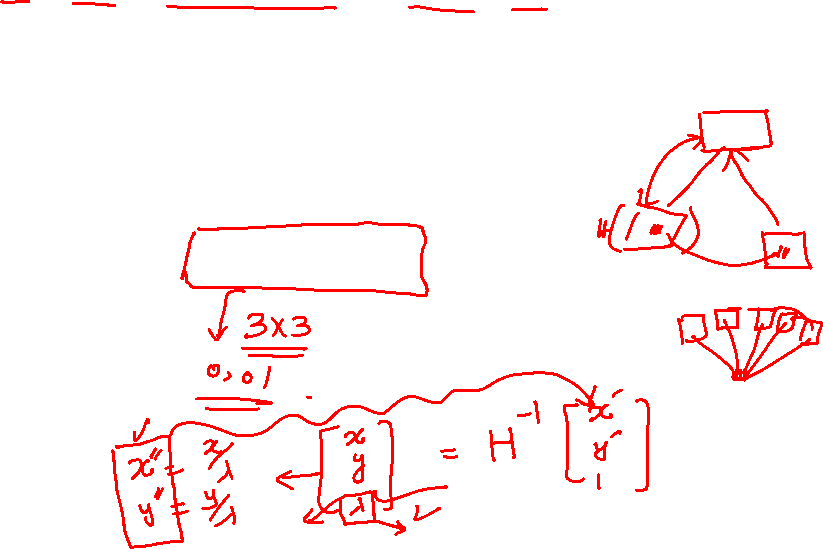 3x3
0,01
x'' = x/λ
y'' = y/λ
[x y λ] = H⁻¹ [x' y' 1]